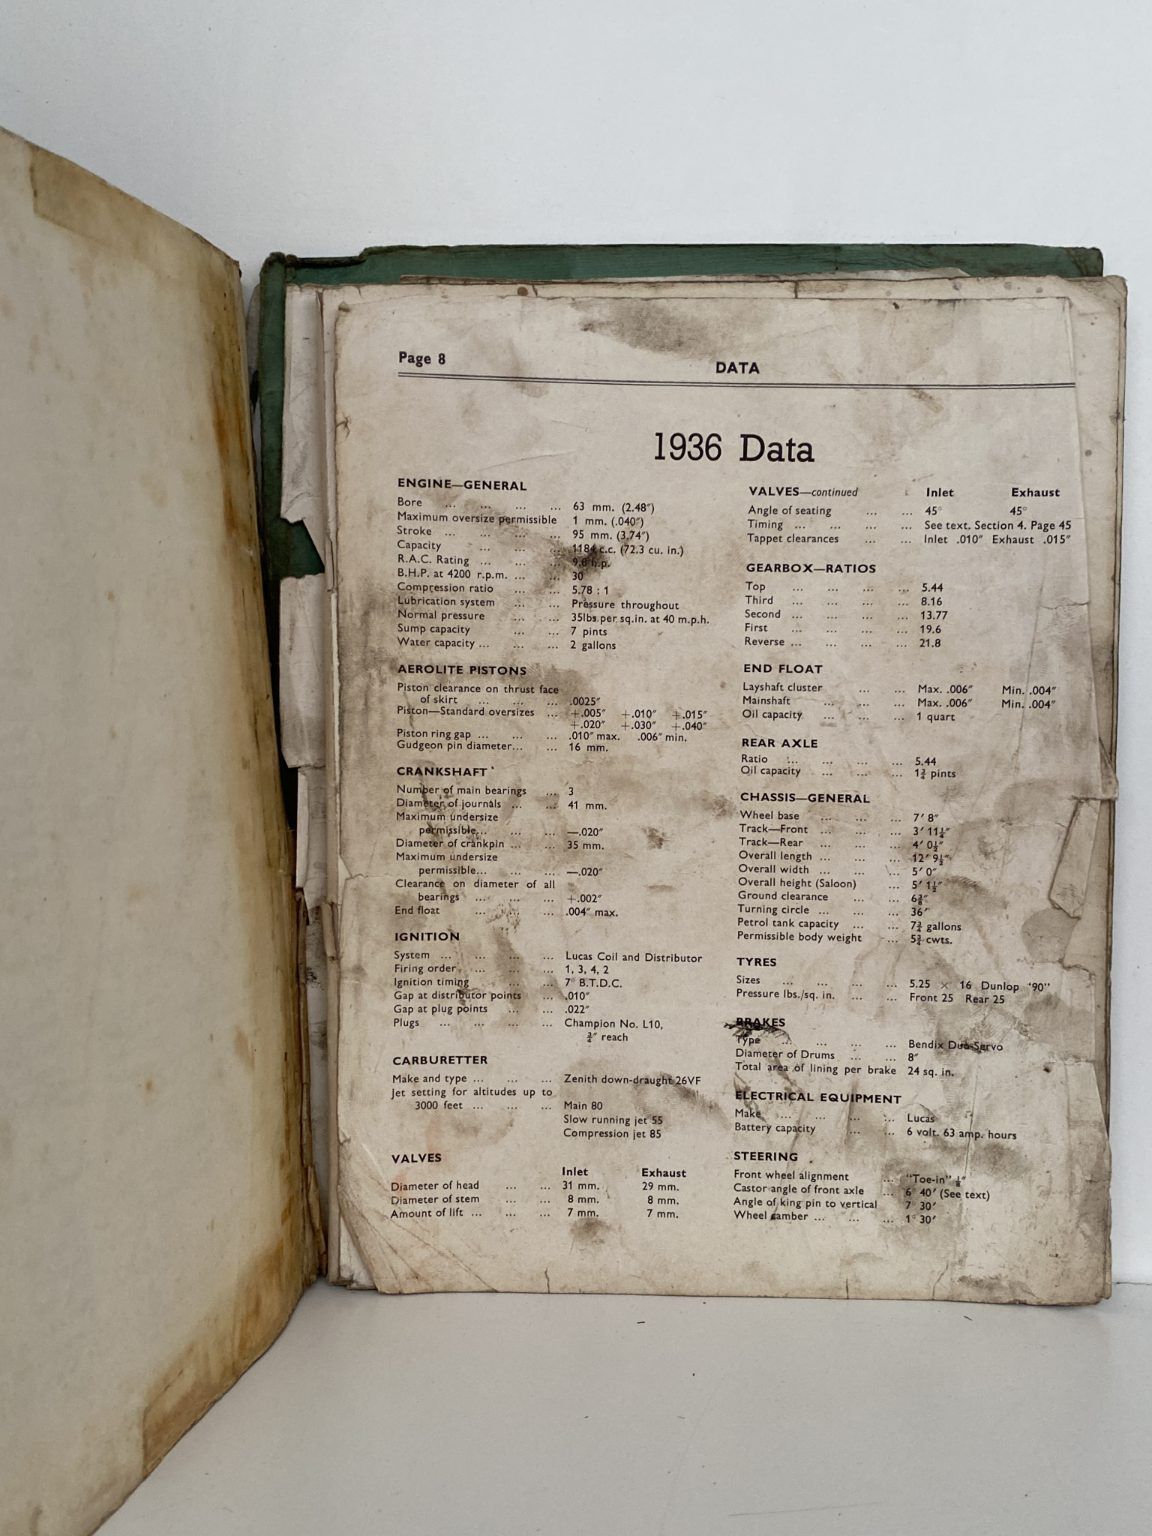 Page 8
DATA
1936 Data
ENGINE—GENERAL
Bore ... ... ... ... 63 mm. (2.48″)
Maximum oversize permissible 1 mm. (.040″)
Stroke ... ... ... ... 95 mm. (3.74″)
Capacity ... ... ... 1184 c.c. (72.3 cu. in.)
R.A.C. Rating ... ... ... 9.8 h.p.
B.H.P. at 4200 r.p.m. ... ... 30
Compression ratio ... ... 5.78 : 1
Lubrication system ... ... Pressure throughout
Normal pressure ... ... 35lbs per sq.in. at 40 m.p.h.
Sump capacity ... ... 7 pints
Water capacity ... ... ... 2 gallons
AEROLITE PISTONS
Piston clearance on thrust face
of skirt ... ... ... .0025″
Piston—Standard oversizes ... +.005″ +.010″ +.015″
+.020″ +.030″ +.040″
Piston ring gap ... ... ... .010″ max. .006″ min.
Gudgeon pin diameter... ... 16 mm.
CRANKSHAFT
Number of main bearings ... 3
Diameter of journals ... ... 41 mm.
Maximum undersize
permissible... ... ... —.020″
Diameter of crankpin ... ... 35 mm.
Maximum undersize
permissible... ... ... —.020″
Clearance on diameter of all
bearings ... ... ... +.002″
End float ... ... ... .004″ max.
IGNITION
System ... ... ... ... Lucas Coil and Distributor
Firing order ... ... ... 1, 3, 4, 2
Ignition timing ... ... 7° B.T.D.C.
Gap at distributor points ... .010″
Gap at plug points ... ... .022″
Plugs ... ... ... ... Champion No. L10,
¾″ reach
CARBURETTER
Make and type ... ... ... Zenith down-draught 26VF
Jet setting for altitudes up to
3000 feet ... ... ... Main 80
Slow running jet 55
Compression jet 85
VALVES
Inlet Exhaust
Diameter of head ... ... 31 mm. 29 mm.
Diameter of stem ... ... 8 mm. 8 mm.
Amount of lift ... ... ... 7 mm. 7 mm.
VALVES—continued Inlet Exhaust
Angle of seating ... ... 45° 45°
Timing ... ... ... ... See text, Section 4. Page 45
Tappet clearances ... ... Inlet .010″ Exhaust .015″
GEARBOX—RATIOS
Top ... ... ... ... 5.44
Third ... ... ... ... 8.16
Second ... ... ... ... 13.77
First ... ... ... ... 19.6
Reverse ... ... ... ... 21.8
END FLOAT
Layshaft cluster ... ... Max. .006″ Min. .004″
Mainshaft ... ... ... Max. .006″ Min. .004″
Oil capacity ... ... ... 1 quart
REAR AXLE
Ratio ... ... ... ... 5.44
Oil capacity ... ... ... 1¾ pints
CHASSIS—GENERAL
Wheel base ... ... ... 7′ 8″
Track—Front ... ... ... 3′
Track—Rear ... ... ... 4′ 0½″
Overall length ... ... ... 12′ 9½″
Overall width ... ... ... 5′ 0″
Overall height (Saloon) ... 5′ 1½″
Ground clearance ... ...
Turning circle ... ... ... 36′
Petrol tank capacity ... ... 7¾ gallons
Permissible body weight ... 5¾ cwts.
TYRES
Sizes ... ... ... ... 5.25 × 16 Dunlop "90"
Pressure lbs./sq. in. ... ... Front 25 Rear 25
BRAKES
Type ... ... ... ... Bendix Duo-Servo
Diameter of Drums ... ... 8″
Total area of lining per brake 24 sq. in.
ELECTRICAL EQUIPMENT
Make ... ... ... ... Lucas
Battery capacity ... ... 6 volt. 63 amp. hours
STEERING
Front wheel alignment ... "Toe-in"
Castor angle of front axle ... 6° 40′ (See text)
Angle of king pin to vertical 7° 30′
Wheel camber ... ... ... 1° 30′